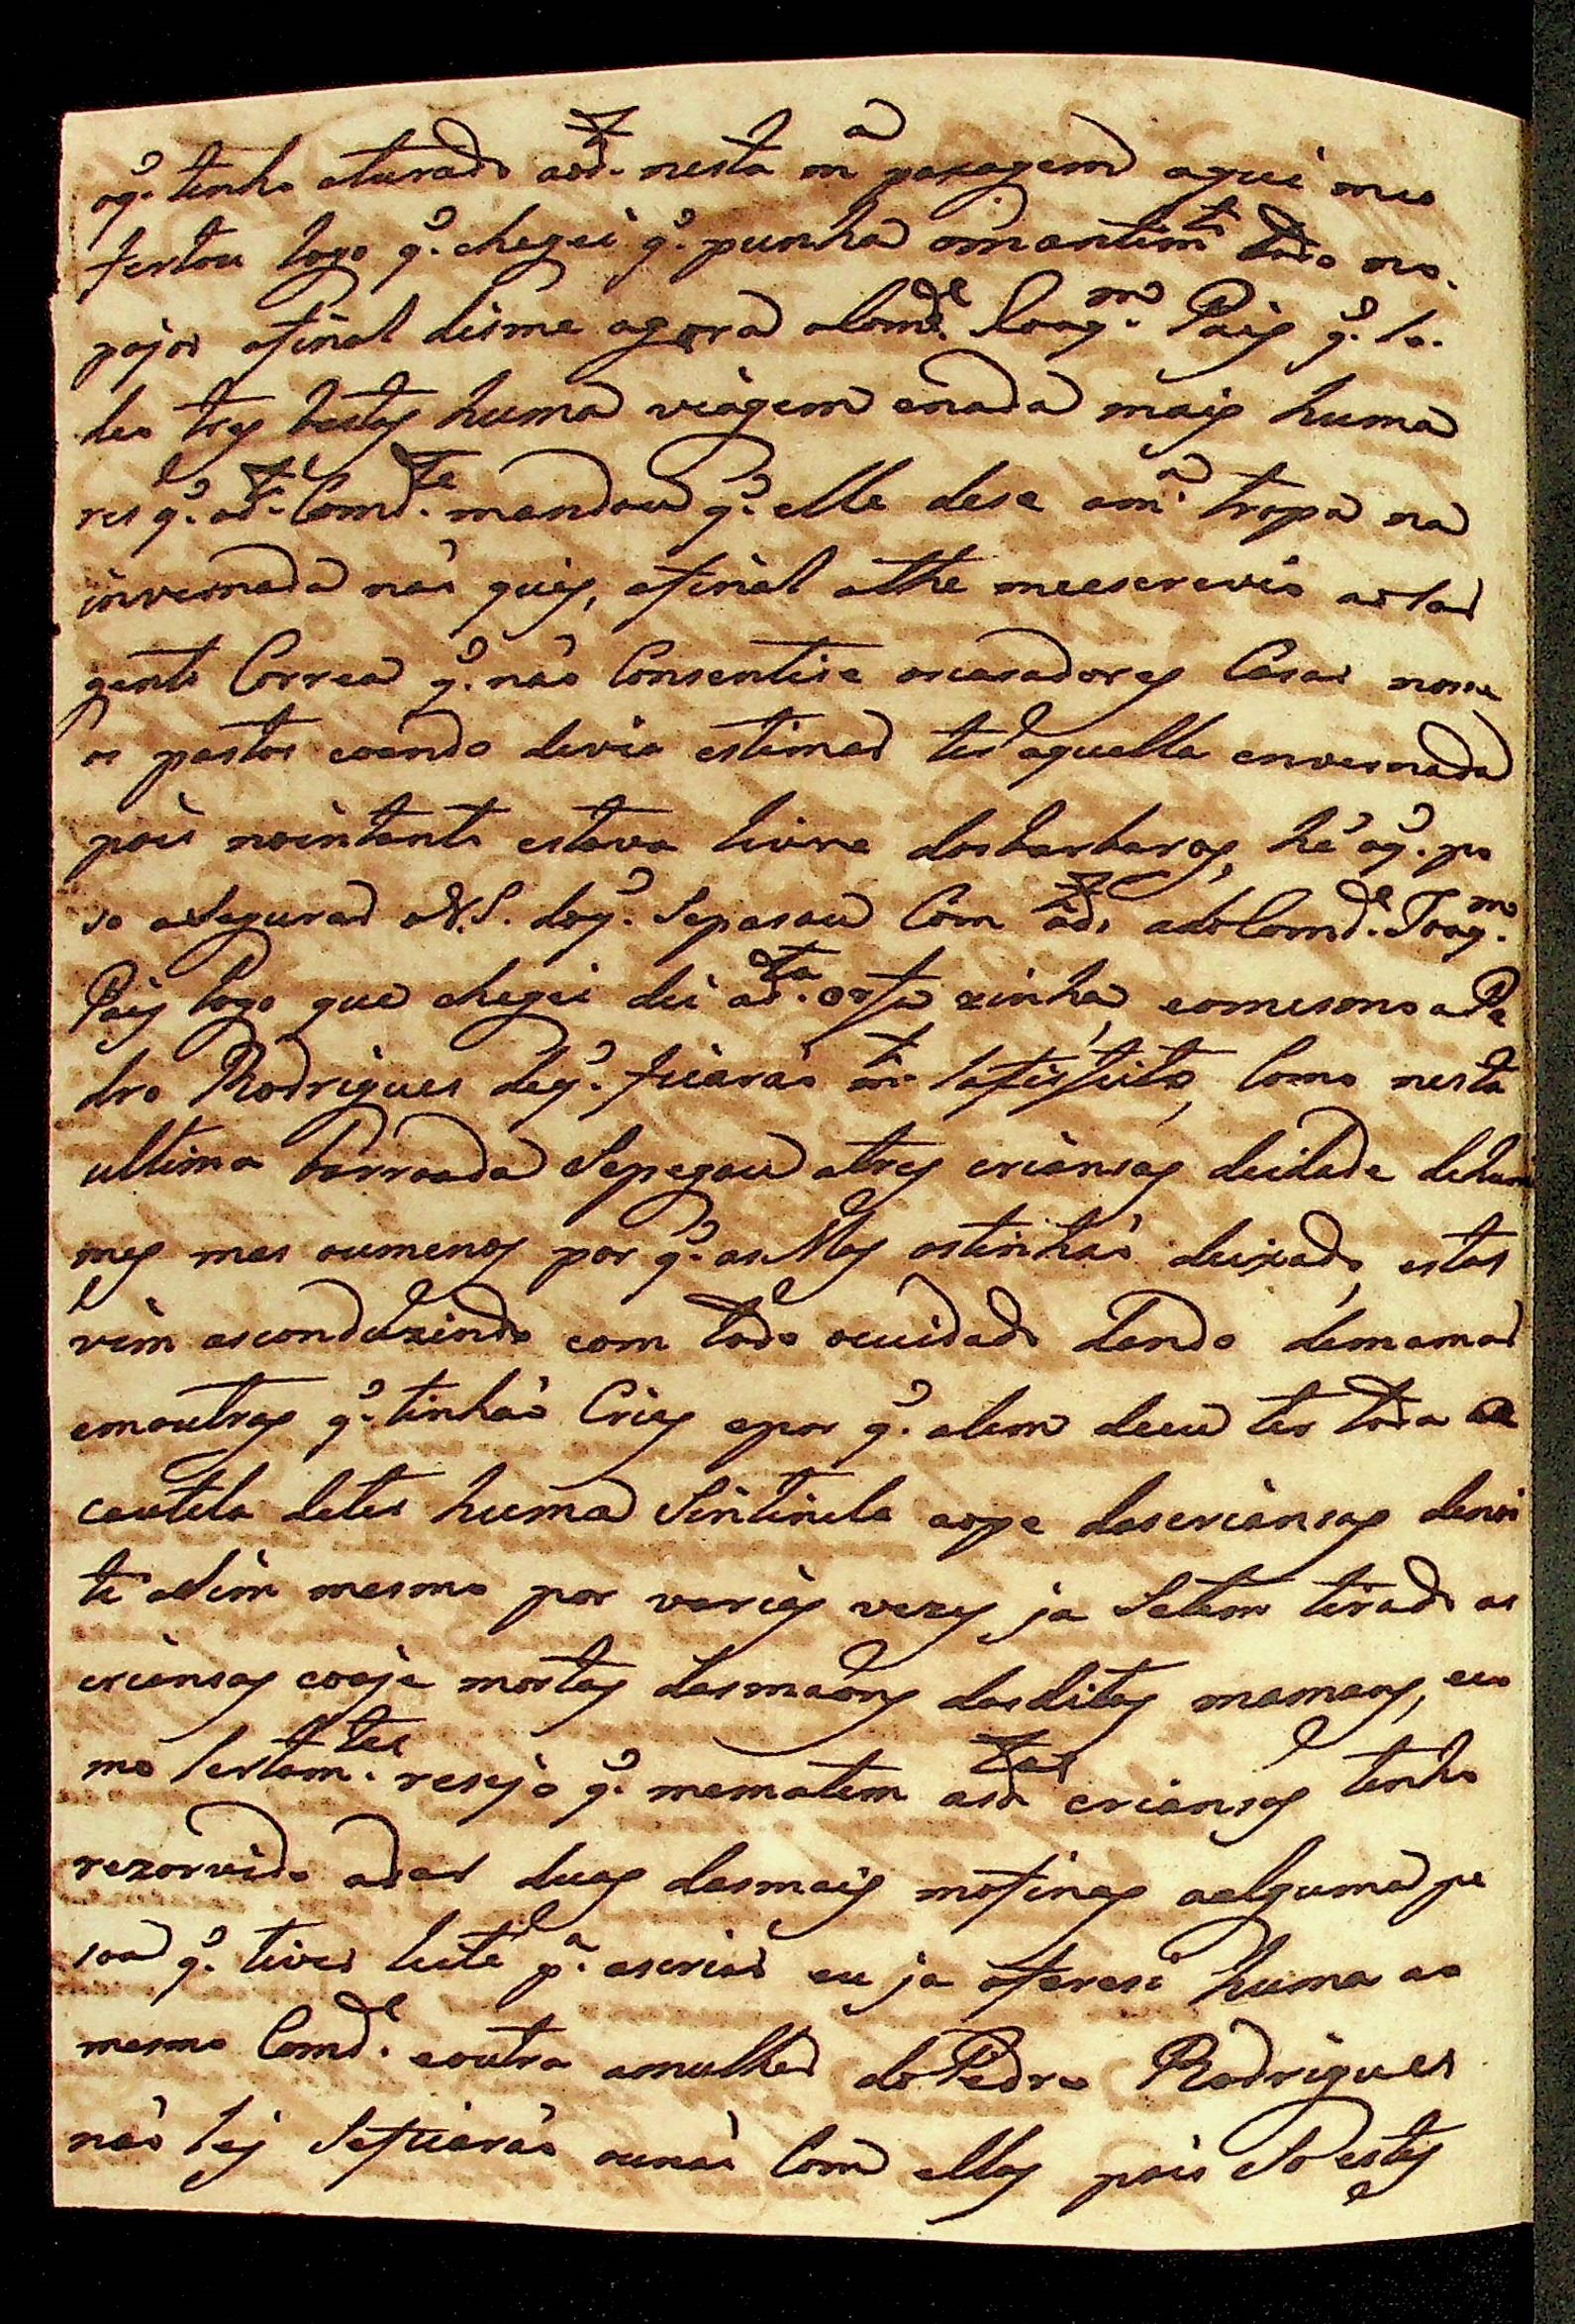 oq.e tenho aturado aod.o nesta m.a pasagem aqui me o
fertou logo q.e chegei q.e punha omantim.to todo no
pajol afinal disme agora aComd.e Joaq.m Paiz q.e so
deo trez bestaz huma viagem enada maiz huma
res q.e od.o Comd.te mandou q.e elle dese am.a tropa na
invernada não quiz, afinal athe meescrevio ao Sar
gento Correa q.e não Consentise oscasadorez Casar nos
os pastos coando devia estimar ter aquella envernada
pois nointanto estava livre dosbarbaroz, hé oq.e po
so aSegurar aV.S. doq.e Sepasou Com od.o aoComd.e Joaq.m
Paiz logo que chegei dei ad.ta ortazinha, eomesmo aPe
dro Rodrigues deq.e ficarão m.to Satisfeitoz, Como nesta
ultima barroada Sepegou a trez criansaz deidade dehum
mez mas oumenoz por q.e as Maiz astinhão deixado, estas
vim asconduzindo com todo ocuidado dando demamar
emoutraz q.e tinhão Criaz epor q.e alem deeu ter toda a
cautela deter huma Sintinela aope dascriansaz denoi
te aSim mesmo por variaz vezez ja Setem tirado as
criansaz coaje mortaz dasmaonz dasditaz mamanz, eco
mo sertam.te resejo q.e mematem asd.tas criansaz tenho
rezorvido adar duaz dasmaiz mofinaz aalguma pe
soa q.e tiver leite p.a ascriar eu ja ofereci huma ao
mesmo Comd.e eoutra amulher doPedro Rodrigues
não Sej Seficarão ounão Com ellaz pois So estaz